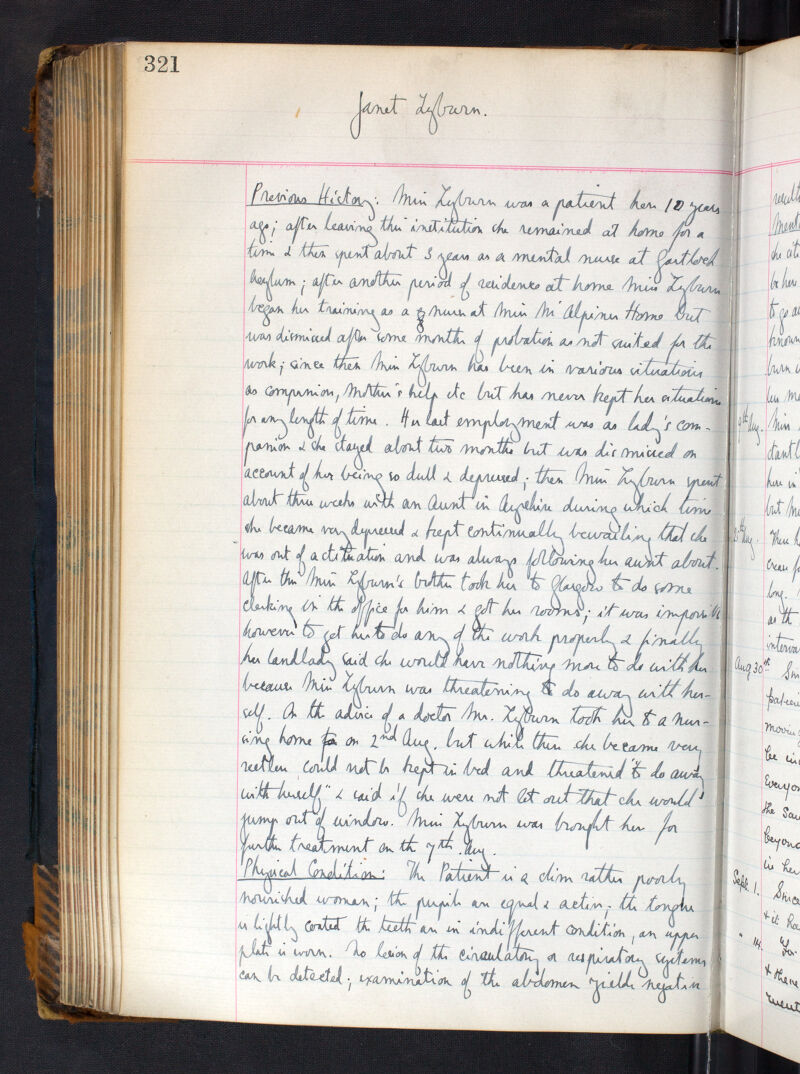 321
Janet Lyburn.
Previous History: Miss Lyburn was a patient here 10 years
ago; after leaving this institution she remained at home for a
time & then spent about 3 years as a mental nurse at Gartloch
Asylum; after another period of residence at home Miss Lyburn
began her training as a nurse at Miss McAlpine's Home but
was dismissed after some months of probation as not suited for the
work; since then Miss Lyburn has been in various situations
as companion, Mother's help etc but has never kept her situations
for any length of time. Her last employment was as lady's com-
panion & she stayed about two months but was dismissed on
account of her being so dull & depressed; then Miss Lyburn spent
about three weeks with an Aunt in Ayrshire during which time
she became very depressed & kept continually bewailing that she
was out of a situation and was always following her aunt about.
After this Miss Lyburn's brother took her to Glasgow to do some
clerking in the office for him & got her rooms; it was impossible
however to get her to do any of the work properly & finally
her landlady said she would have nothing more to do with her
because Miss Lyburn was threatening to do away with her-
self. On the advice of a doctor Mr. Lyburn took her to a nur-
sing home on 2nd Aug. but while there she became very
restless, could not be kept in bed and threatened "to do away
with herself" & said if she were not let out that she would
jump out of window. Miss Lyburn was brought here for
further treatment on the 7th Aug.
Physical Condition: The Patient is a slim rather poorly
nourished woman; the pupils are equal & active; the tongue
is lightly coated the teeth are in indifferent condition, an upper
plate is worn. No lesion of the circulatory or respiratory systems
can be detected; examination of the abdomen yields negative
Aug 30th
Sept. 1.